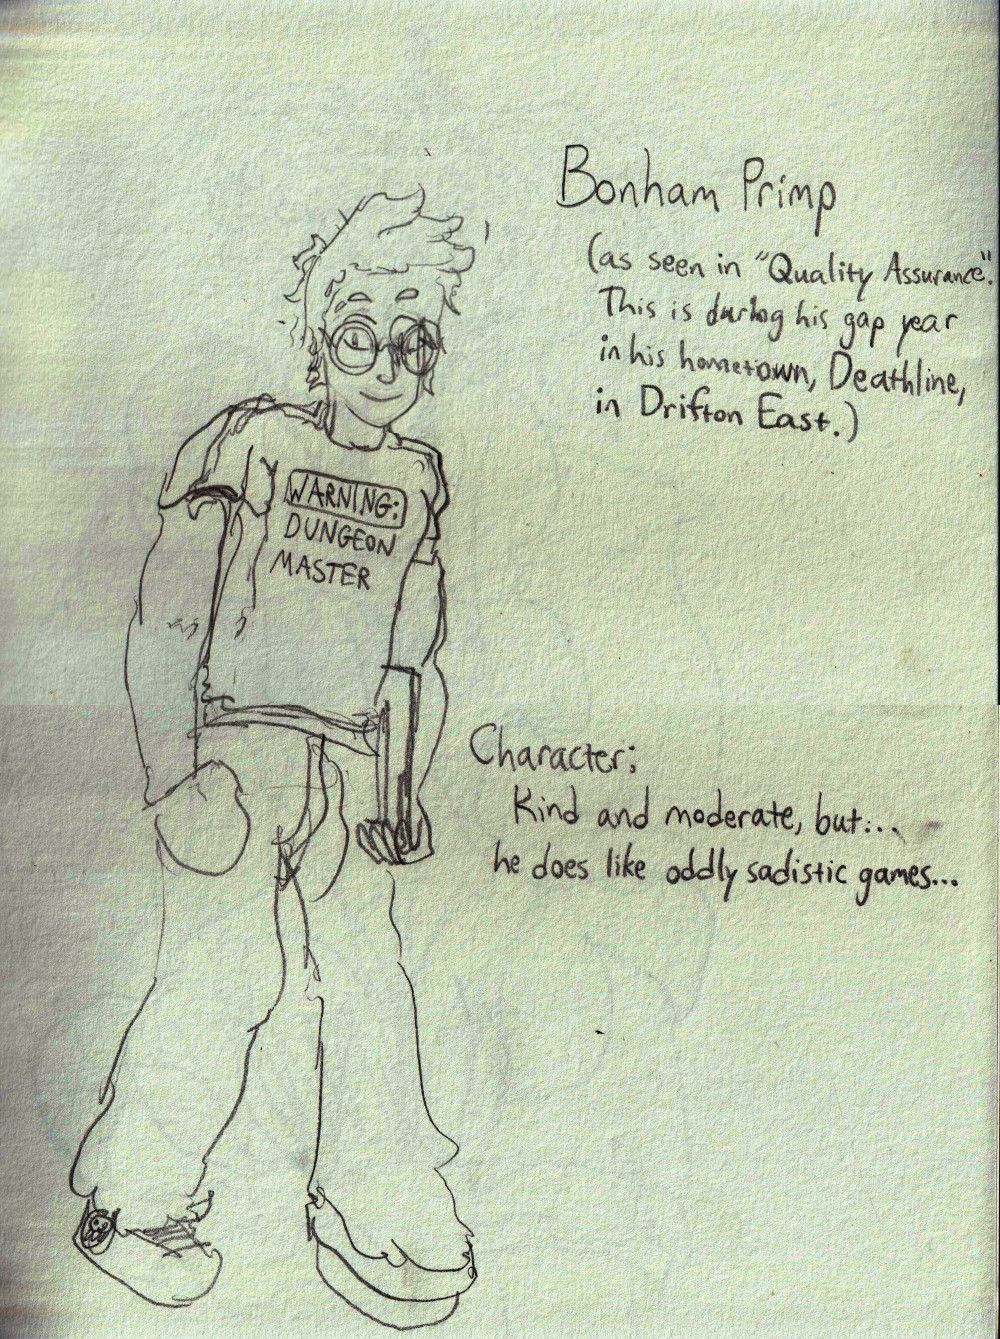 Bonham Primp
(as seen in "Quality Assurance".
This is during his gap year
in his hometown, Deathline,
in Drifton East.)
WARNING:
DUNGEON
MASTER
Character:
Kind and moderate, but...
he does like oddly sadistic games...